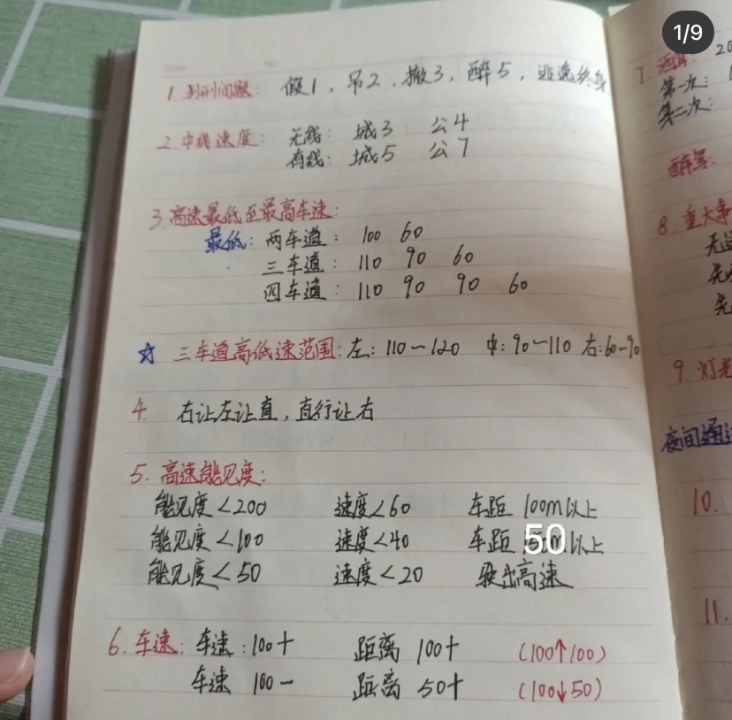 1/9
1. 判刑间跟: 假1, 吊2, 撤3, 醉5, 逃逸终身
2. 中线速度: 无线: 城3 公4
有线: 城5 公7
3. 高速最低至最高车速:
最低: 两车道: 100 60
三车道: 110 90 60
四车道: 110 90 90 60
☆ 三车道高低速范围: 左: 110~120 中: 90~110 右: 60~90
4. 右让左让直, 直行让右
5. 高速能见度:
能见度<200 速度<60 车距 100m以上
能见度<100 速度<40 车距 50m以上
能见度<50 速度<20 驶出高速
6. 车速: 车速: 100+ 距离 100+ (100↑100)
车速 100- 距离 50+ (100↓50)
7. 酒驾: 20
第一次:
第二次:
醉驾:
8. 重大事
9. 灯光
夜间通过
10.
11.